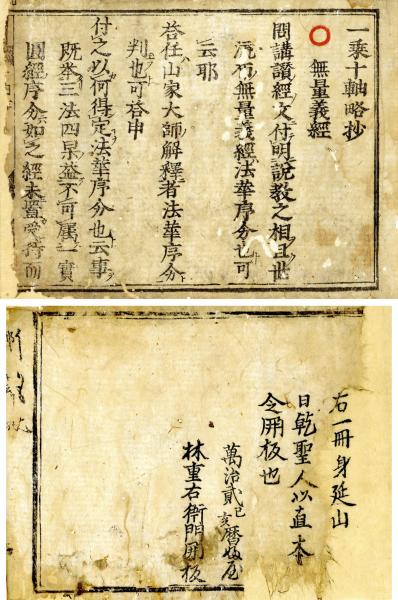 一乘十軸略抄
無量義經
問講讃經文付明說教之相且世
流行無量義經法華序分也可
云耶
答任山家大師解釋者法華序分
判也可答申
付之以何得定法華序分也云事
既莽三法四果益不可属一實
圓經序分如之經未置受持前
右一冊身延山
日乾聖人以直本
令開板也
萬治貳己亥曆
林重右衛門開板